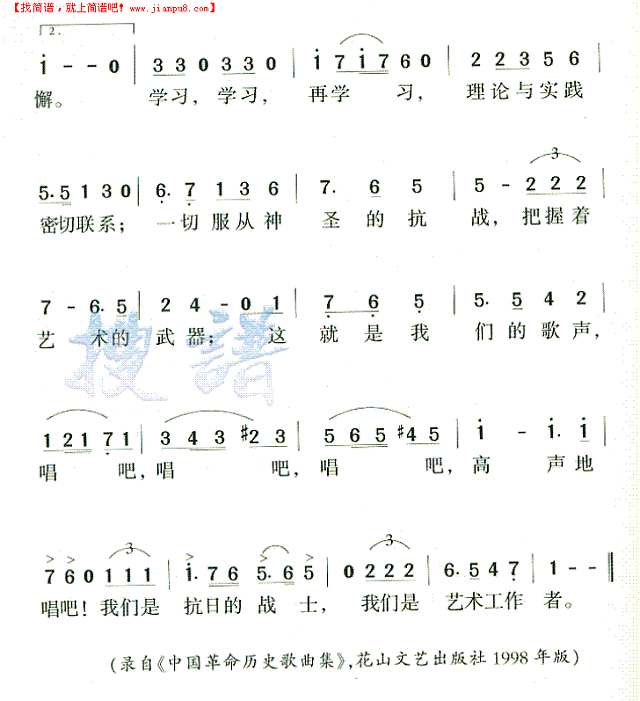 【找简谱，就上简谱吧！www.jianpu8.com】
2.
i - - 0 | 3 3 0 3 3 0 | i 7 i 7 6 0 | 2 2 3 5 6 |
懈。 学习，学习， 再学 习， 理论与实践
5. 5 1 3 0 | 6. 7 1 3 6 | 7. 6 5 | 5 - 2 2 2 |
密切联系；一切服从神 圣的抗 战，把握着
7 - 6. 5 | 2 4 - 0 1 | 7 6 5 | 5. 5 4 2 |
艺 术的 武器；这 就是我 们的歌声，
1 2 1 7 1 | 3 4 3 #2 3 | 5 6 5 #4 5 | i - i. i |
唱 吧，唱 吧，唱 吧，高 声地
7 6 0 1 1 1 | i. 7 6 5. 6 5 | 0 2 2 2 | 6. 5 4 7 | 1 - - ‖
唱吧！我们是 抗日的战士，我们是 艺术工作 者。
(录自《中国革命历史歌曲集》，花山文艺出版社 1998 年版)
搜谱